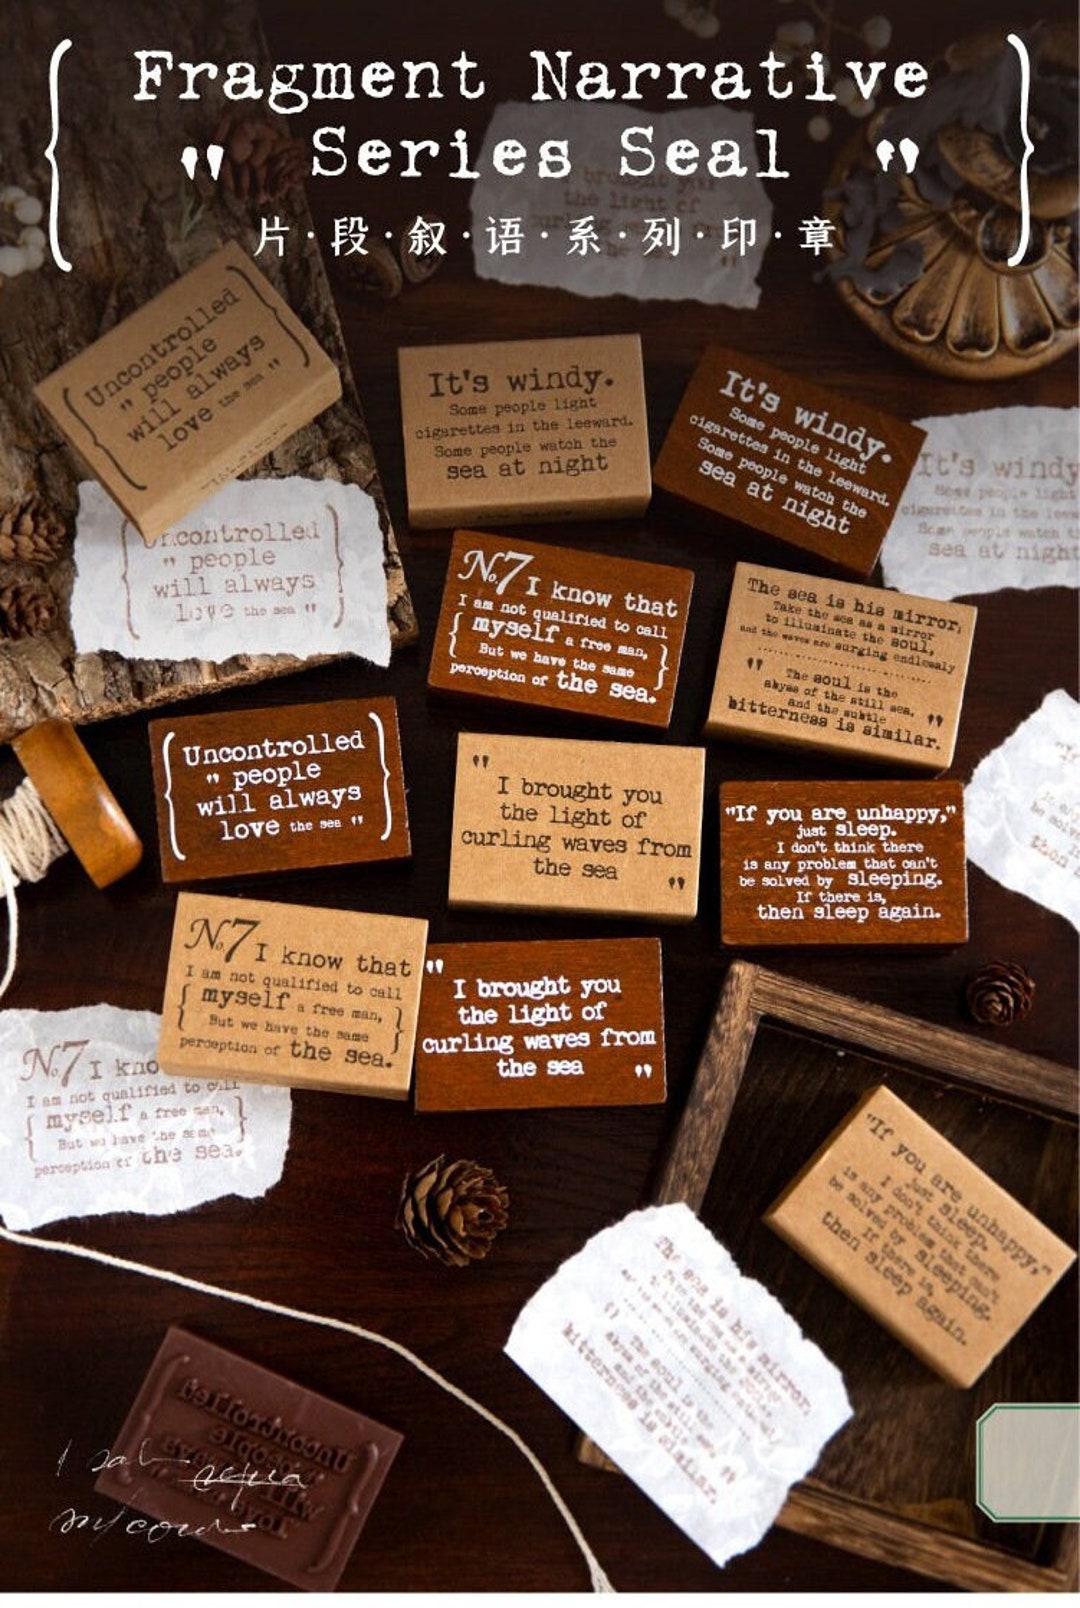 Fragment Narrative
" Series Seal "
片·段·叙·语·系·列·印·章
brought you
the light of
Uncontrolled
" people
will always
love the sea "
It's windy.
Some people light
cigarettes in the leeward.
Some people watch the
sea at night
It's windy.
Some people light
cigarettes in the leeward.
Some people watch the
sea at night
It's windy
Some people light
cigarettes in the leew
Some people watch t
sea at night
Uncontrolled
" people
will always
love the sea "
No.7 I know that
I am not qualified to call
myself a free man,
But we have the same
perception of the sea.
The sea is his mirror,
Take the sea as a mirror
to illuminate the soul,
and the waves are surging endlessly
" The soul is the
abyss of the still sea,
and the subtle "
bitterness is similar.
Uncontrolled
" people
will always
love the sea "
"
I brought you
the light of
curling waves from
the sea
"
"If you are unhappy,"
just sleep.
I don't think there
is any problem that can't
be solved by sleeping.
If there is,
then sleep again.
No.7 I know that
I am not qualified to call
myself a free man,
But we have the same
perception of the sea.
"
I brought you
the light of
curling waves from
the sea "
No.7 I kno
I am not qualified to call
myself a free man,
But we have the same
perception of the sea.
"If you are unhappy,"
just sleep.
I don't think there
is any problem that can't
be solved by sleeping.
If there is,
then sleep again.
The sea is his mirror,
The soul is the
bitterness is similar.